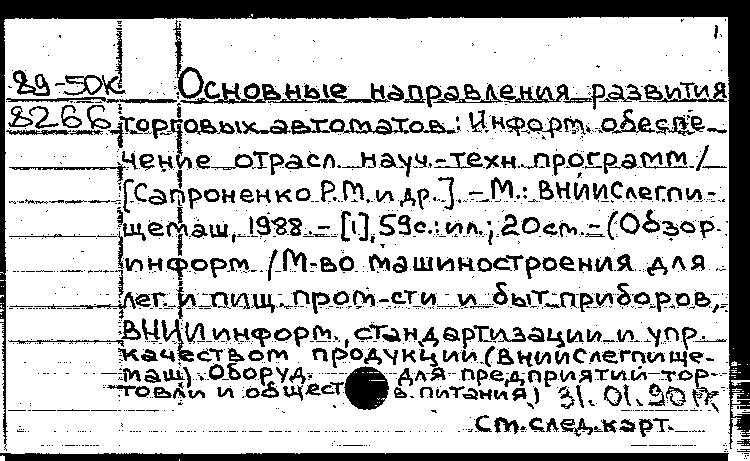 89-50К Основные направления развития
8266 торговых автоматов: Информ. обеспе-
чение отрасл. науч.-техн. программ /
[Сапроненко Р.М. и др.]. - М.: ВНИИСлегпи-
щемаш, 1988. - [1], 59с.: ил.; 20см. - (Обзор.
информ. / М-во машиностроения для
лег. и пищ. пром-сти и быт. приборов,
ВНИИ информ., стандартизации и упр.
качеством продукции (ВНИИСлегпище-
маш). Оборуд. для предприятий тор-
говли и обществ. питания) 31.01.90
См. след. карт.